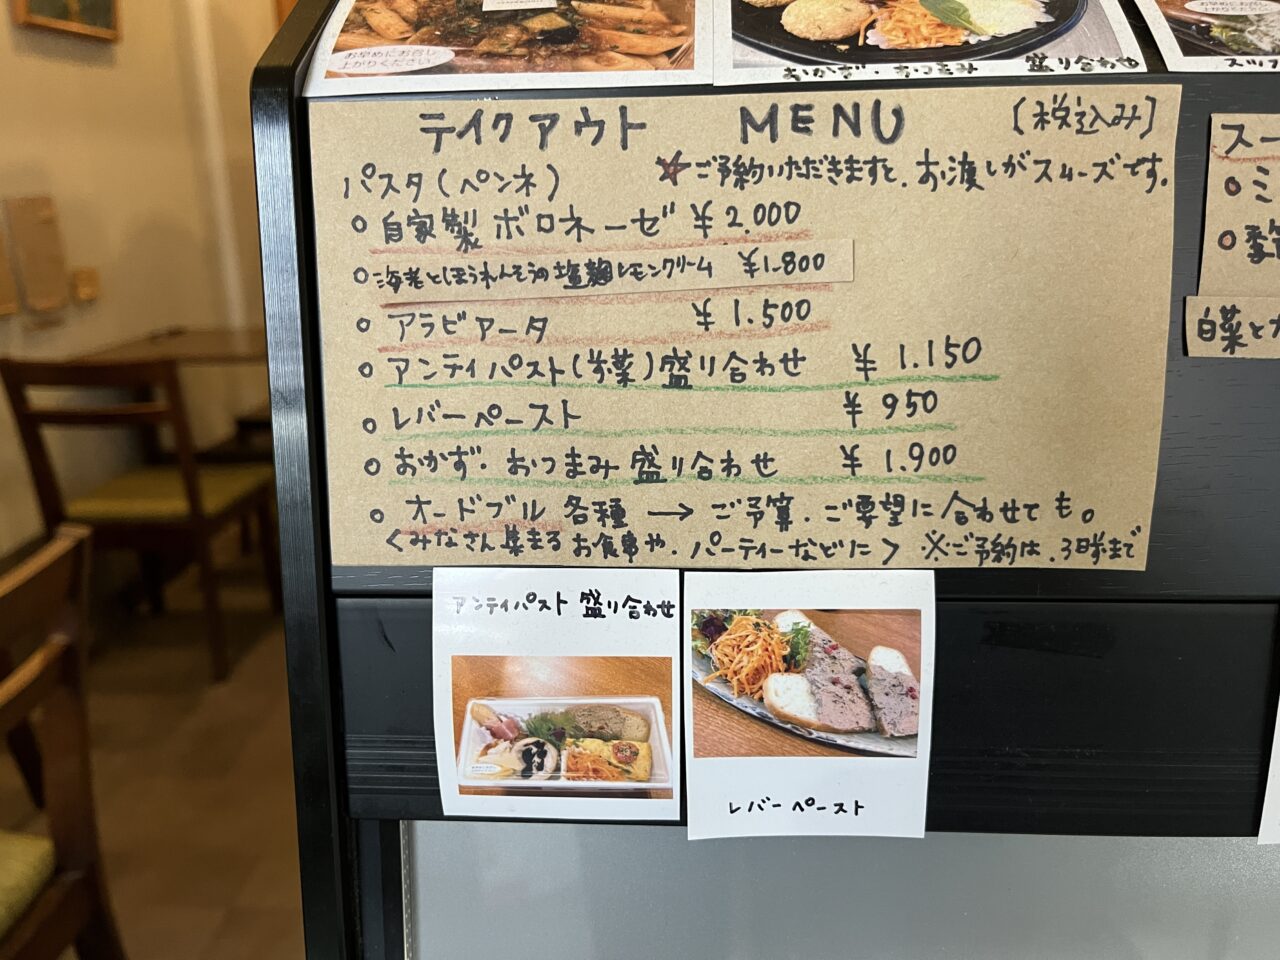 お早めにお召し
上がりください
おかず・おつまみ 盛り合わせ
テイクアウト MENU 〔税込み〕
パスタ(ペンネ) ☆ご予約いただきますと、お渡しがスムーズです。
○自家製ボロネーゼ ¥2.000
○海老とほうれんそうの塩麹レモンクリーム ¥1.800
○アラビアータ ¥1.500
○アンティパスト(前菜)盛り合わせ ¥1.150
○レバーペースト ¥950
○おかず・おつまみ盛り合わせ ¥1.900
○オードブル 各種 → ご予算・ご要望に合わせても。
<みなさん集まるお食事や、パーティーなどに> ※ご予約は、3日前まで
アンティパスト 盛り合わせ
レバーペースト
スー
○ミ
○季節
白菜と